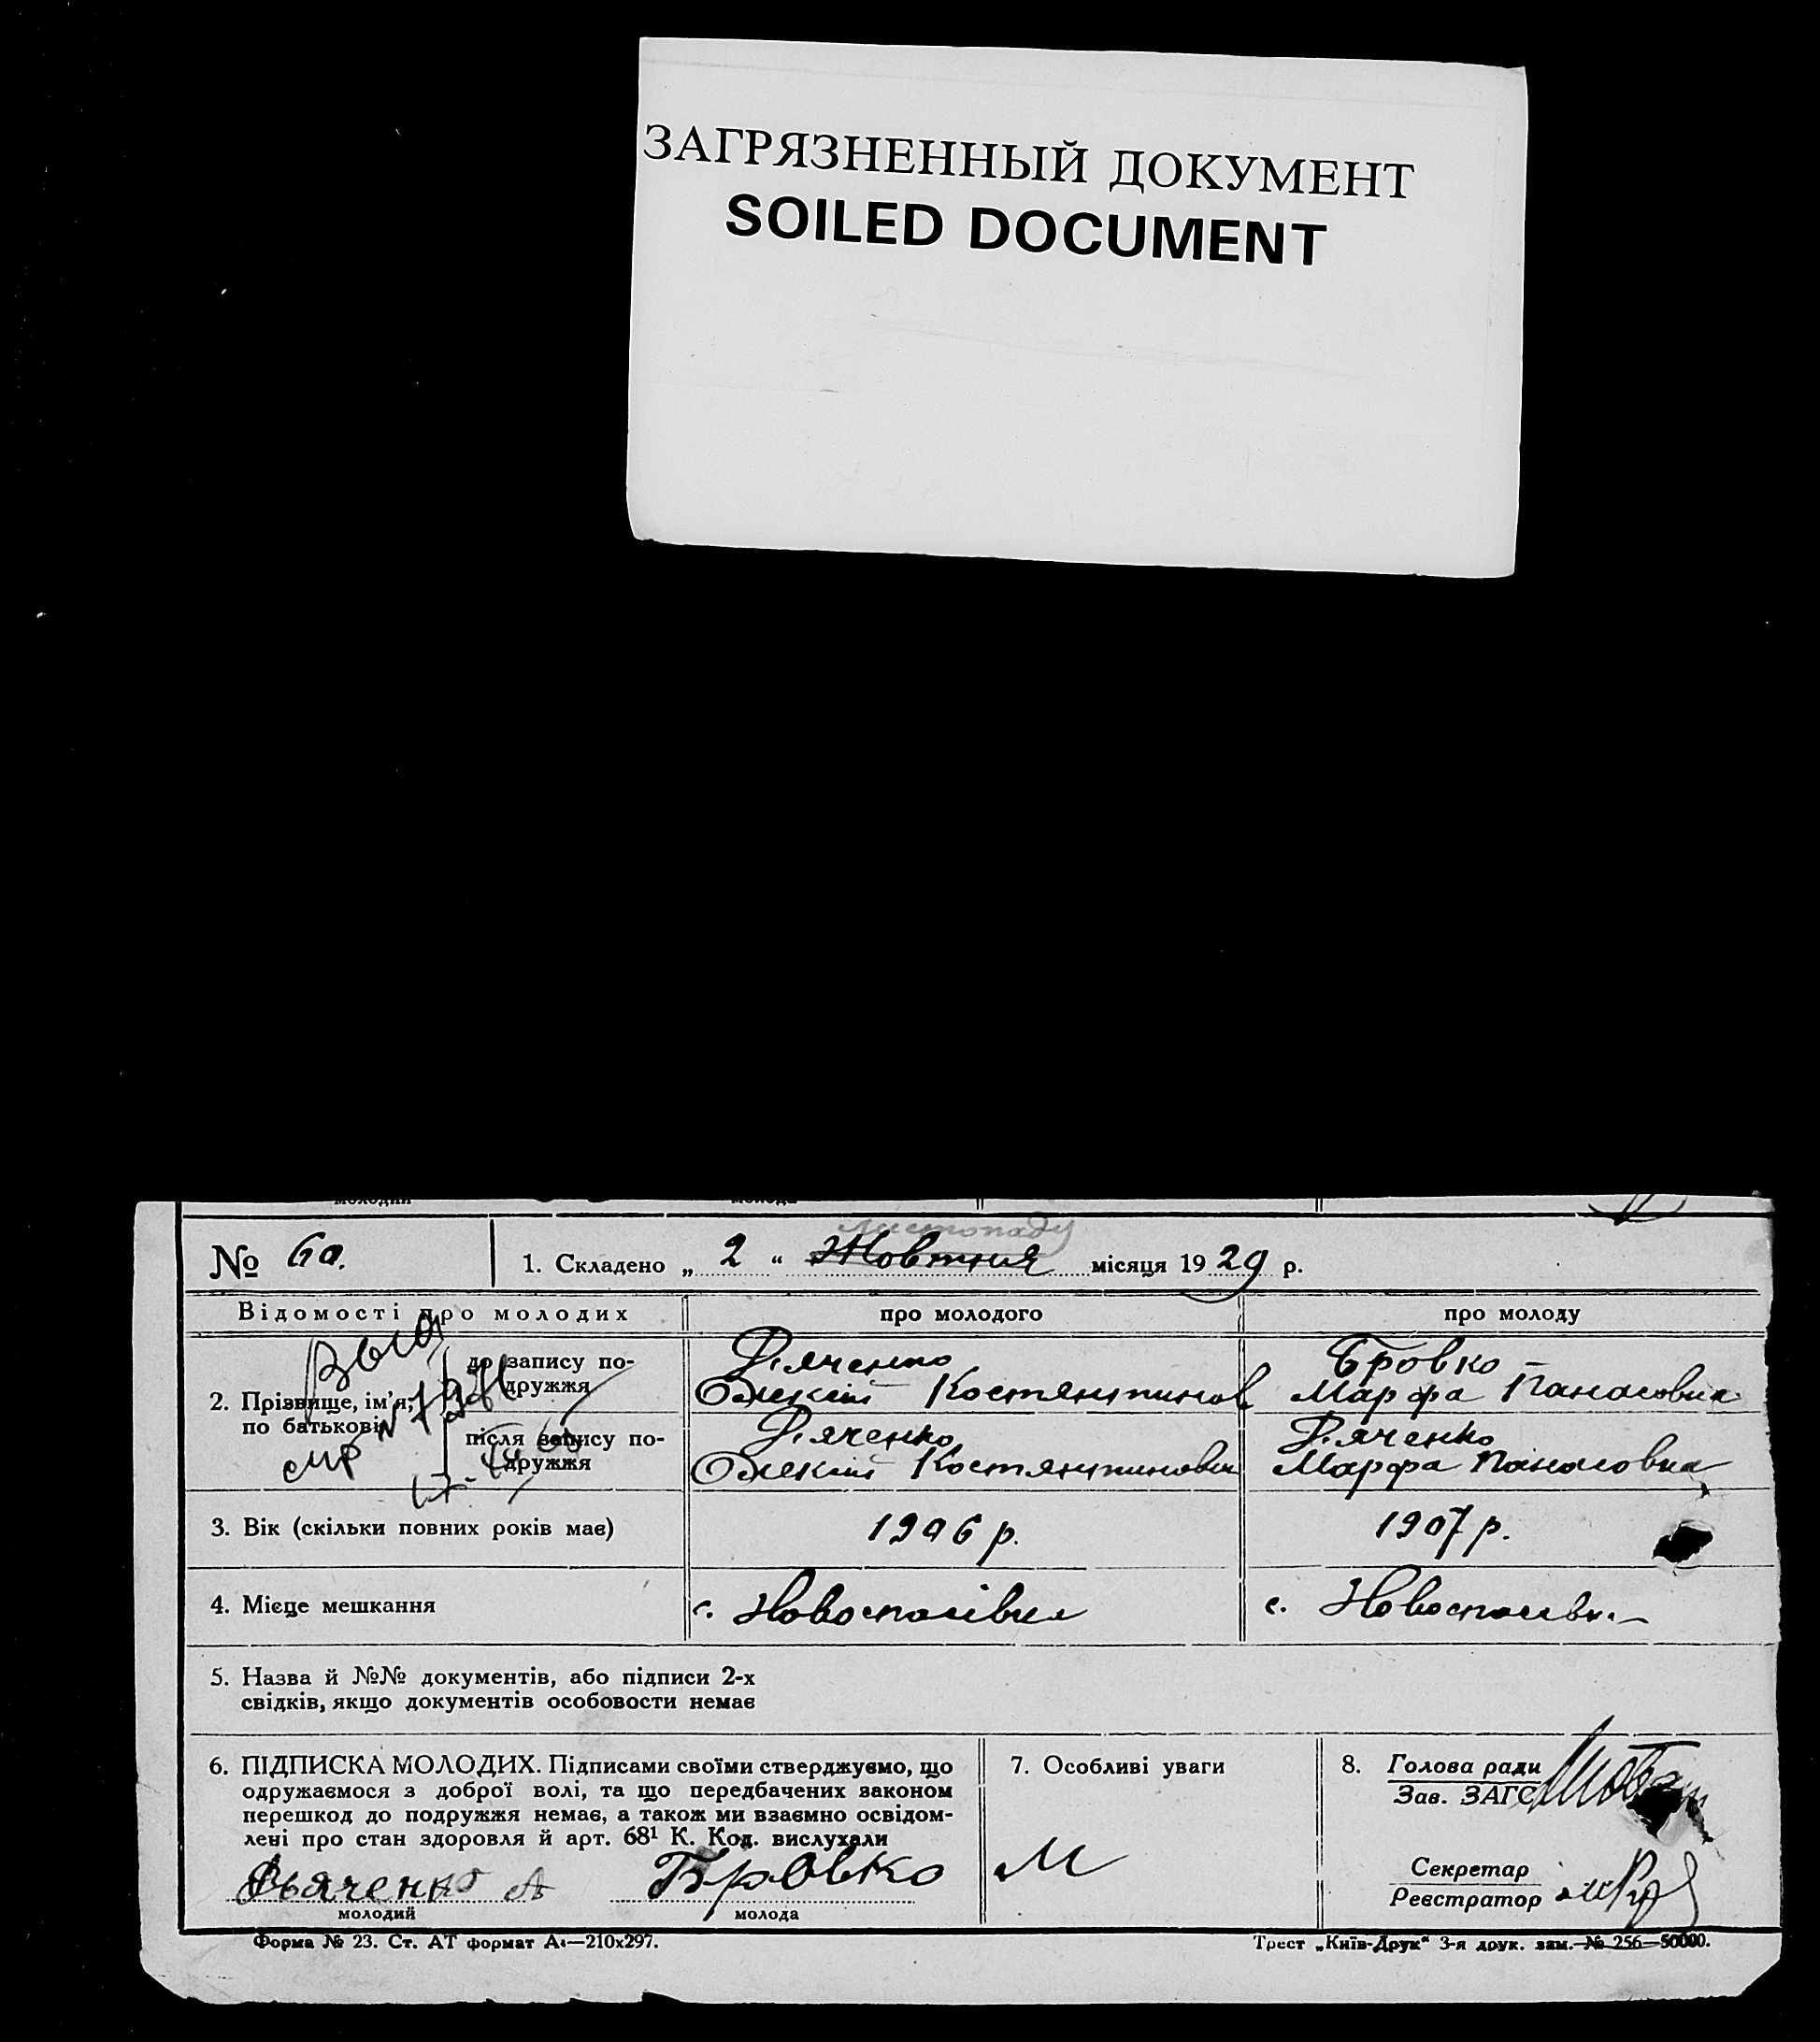 ЗАГРЯЗНЕННЫЙ ДОКУМЕНТ
SOILED DOCUMENT
молодий молода
№ 60.
листопаду
1. Складено „ 2 “ Жовтня місяця 1929 р.
Відомості про молодих
про молодого
про молоду
2. Прізвище, ім'я,
по батькові
до запису по-
дружжя
Дяченко
Олексій Костянтинов
Бровко
Марфа Панасовна
після запису по-
дружжя
Дяченко
Олексій Костянтинович
Дяченко
Марфа Панасовна
3. Вік (скільки повних років має)
1906 р.
1907 р.
4. Місце мешкання
с. Новоспасівка
с. Новоспасівка
5. Назва й №№ документів, або підписи 2-х
свідків, якщо документів особовости немає
6. ПІДПИСКА МОЛОДИХ. Підписами своїми стверджуємо, що
одружаємося з доброї волі, та що передбачених законом
перешкод до подружжя немає, а також ми взаємно освідом-
лені про стан здоровля й арт. 68¹ К. Код. вислухали
Дьяченко А
молодий
Бровко М
молода
7. Особливі уваги
8. Голова ради
Зав. ЗАГС
Секретар
Реєстратор
Форма № 23. Ст. АТ формат А4—210х297.
Трест „Київ-Друк“ 3-я друк. зам. № 256—50000.